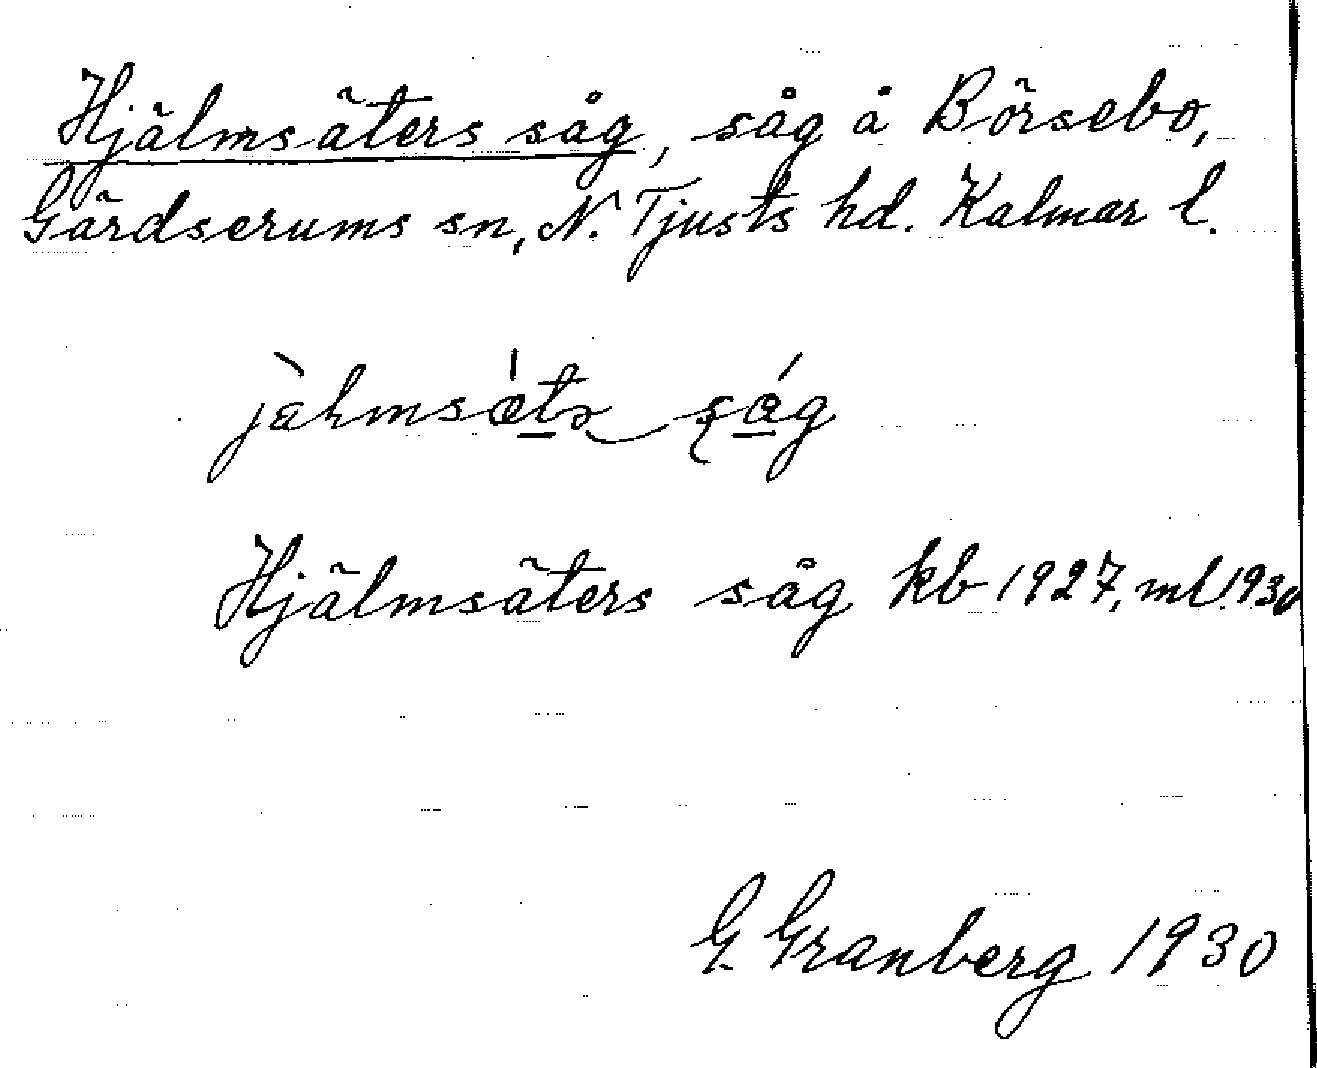 Hjälmsäters såg, såg å Börsebo,
Gärdserums sn, N. Tjusts hd. Kalmar l.
Hjälmsäters såg kb 1927, ml. 1930
G. Granberg 1930